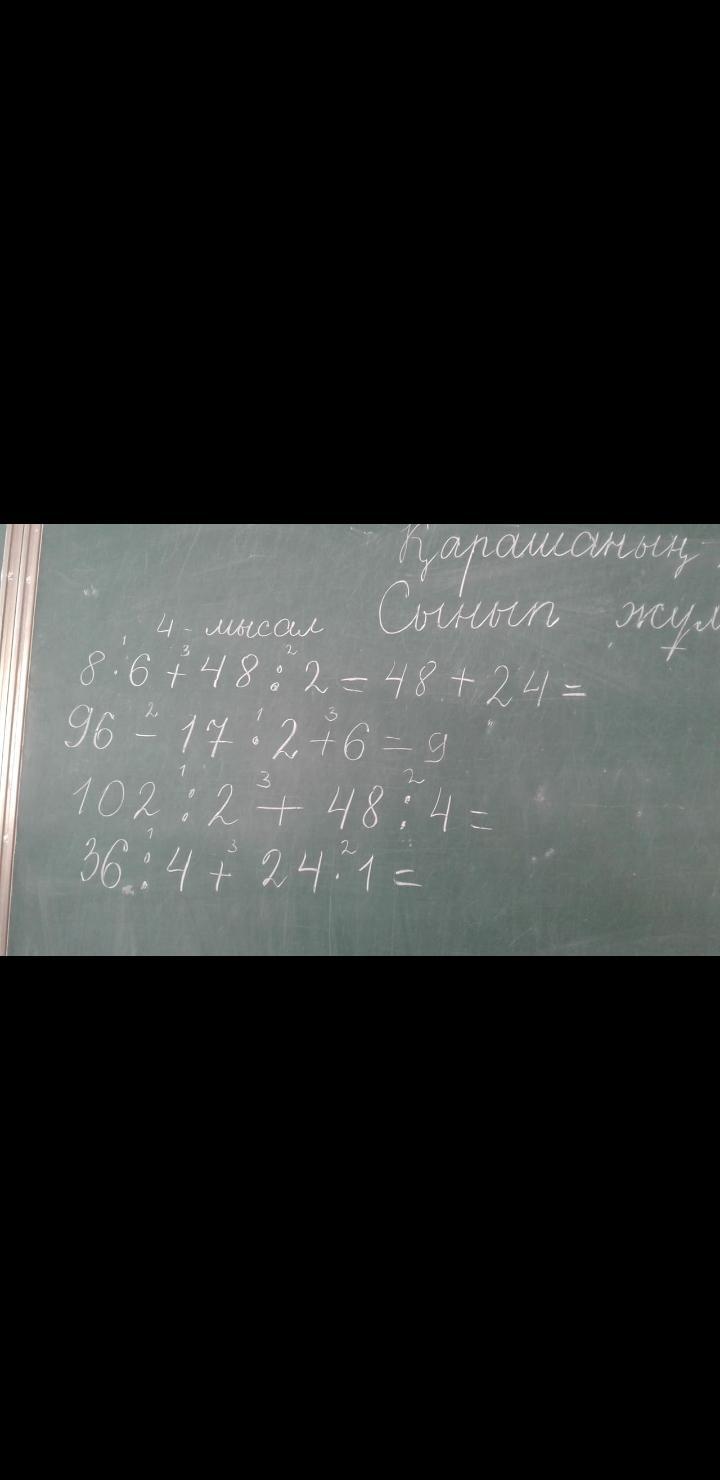 Қарашаның
4-мысал Сынып жұм
8·6+48:2=48+24=
96-17·2+6=9
102:2+48:4=
36:4+24·1=